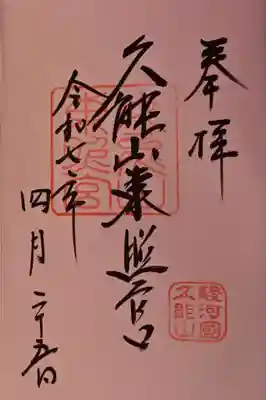 奉拝
久能山東照宮
令和七年
四月二十五日
東照宮
駿河國
久能山